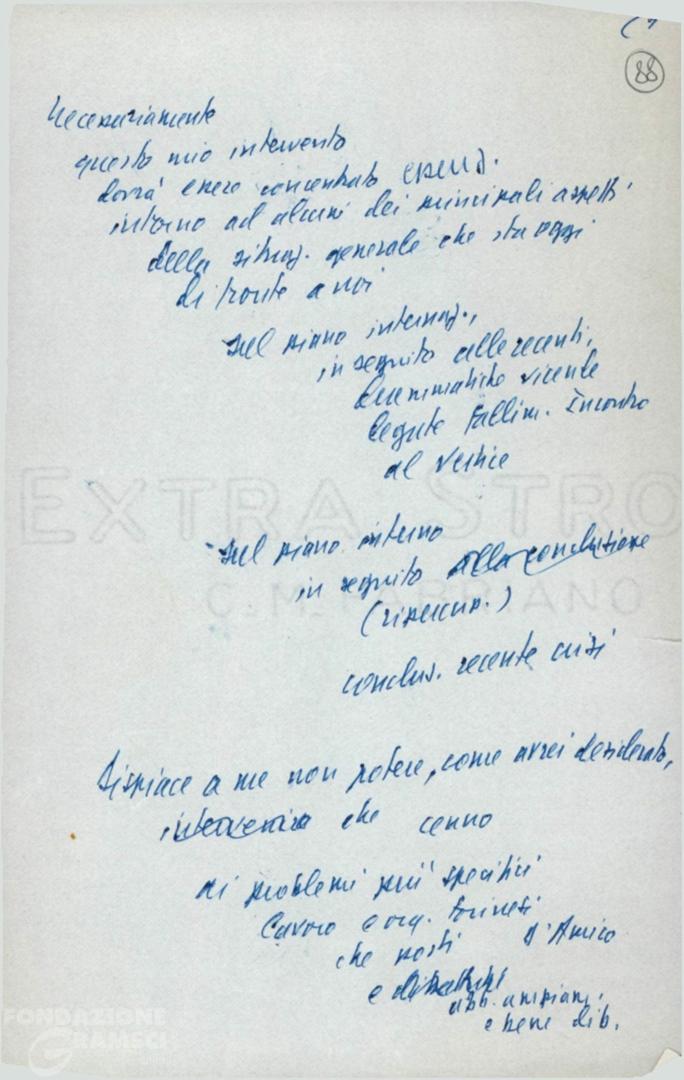 88
Necessariamente
questo mio intervento
dovrà essere concentrato essenz.
intorno ad alcuni dei principali aspetti
della situaz. generale che sta oggi
di fronte a noi
sul piano internaz.,
in seguito alle recenti,
drammatiche vicende
legate fallim. Incontro
al vertice
EXTRA STRO
sul piano interno
in seguito alla conclusione
C.M. FABRIANO
(ripercuss.)
conclus. recente crisi
Dispiace a me non potere, come avrei desiderato,
intervenire che cenno
ai problemi più specifici
lavoro e org. torinesi
che posti D'Amico
e dibattuti
e bene dib.
FONDAZIONE
GRAMSCI